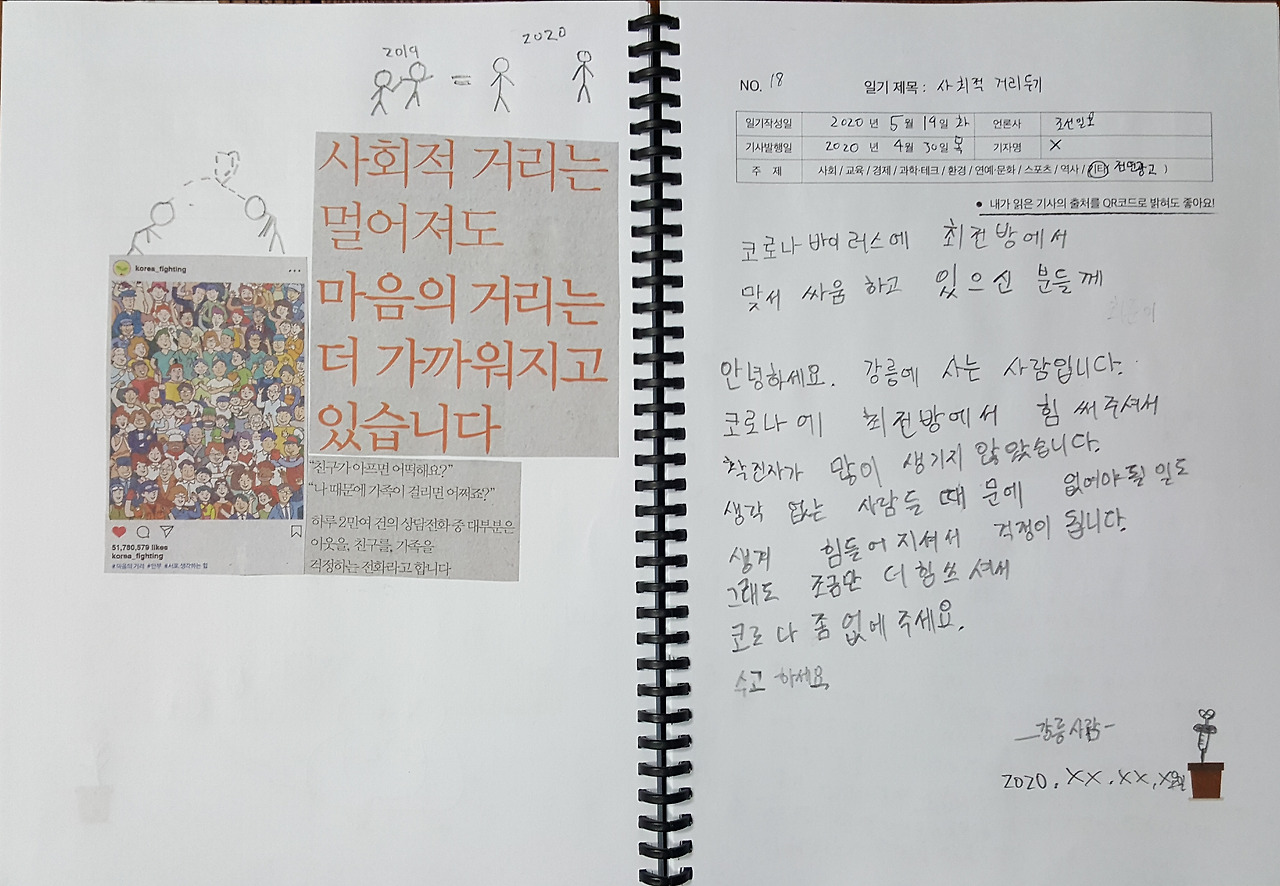 2019
2020
=
사회적 거리는
멀어져도
마음의 거리는
더 가까워지고
있습니다
korea_fighting
51,780,579 likes
korea_fighting
#마음의거리 #안부 #서로생각하는힘
"친구가 아프면 어떡해요?"
"나 때문에 가족이 걸리면 어쩌죠?"
하루 2만여 건의 상담전화 중 대부분은
이웃을, 친구를, 가족을
걱정하는 전화라고 합니다
NO. 18 일기 제목 : 사회적 거리두기
일기작성일 2020 년 5 월 19 일 화 언론사 조선일보
기사발행일 2020 년 4 월 30 일 목 기자명 X
주 제 사회 / 교육 / 경제 / 과학·테크 / 환경 / 연예·문화 / 스포츠 / 역사 / 기타( 전면광고 )
● 내가 읽은 기사의 출처를 QR코드로 밝혀도 좋아요!
코로나 바이러스에 최전방에서
맞서 싸움 하고 있으신 분들께
안녕하세요. 강릉에 사는 사람입니다.
코로나에 최전방에서 힘 써주셔서
확진자가 많이 생기지 않았습니다.
생각 없는 사람들 때문에 없어야 될 일도
생계 힘들어 지셔서 걱정이 됩니다.
그래도 조금만 더 힘쓰셔서
코로나 좀 없에 주세요.
수고 하세요
-강릉사람-
2020. XX. XX. X요일